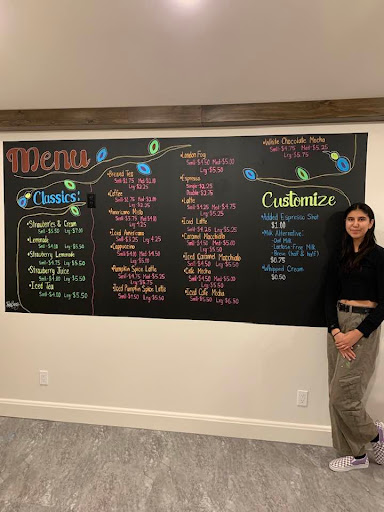 Menu
Classics:
•Strawberries & Cream
Sml-$5.50 Lrg $7.00
•Lemonade
Sml-$4.00 Lrg $5.50
•Strawberry Lemonade
Sml-$4.75 Lrg $5.50
•Strawberry Juice
Sml-$4.00 Lrg $5.50
•Iced Tea
Sml-$4.00 Lrg $5.50
•Brewed Tea
Lrg $2.25
•Coffee
Lrg $2.25
•Americano Misto
•Iced Americano
Sml-$3.25 Lrg $4.25
•Cappuccino
Lrg $5.00
•Pumpkin Spice Latte
Lrg $5.75
•Iced Pumpkin Spice Latte
Sml-$5.00 Lrg $5.50
•London Fog
Sml-$4.50 Med-$5.00
Lrg-$5.50
•Espresso
Single-$2.25
Double-$2.75
•Latte
Sml-$4.25 Med-$4.75
Lrg-$5.25
•Iced Latte
Sml-$4.25 Lrg-$5.25
•Caramel Macchiato
Sml-$4.50 Med-$5.00
Lrg-$5.50
•Iced Caramel Macchiato
Sml-$4.50 Lrg-$5.50
•Cafe Mocha
Sml-$4.50 Med-$5.00
Lrg-$5.50
•Iced Cafe Mocha
Sml-$5.00 Lrg-$5.50
•White Chocolate Mocha
Sml-$4.75 Med-$5.25
Lrg-$5.75
Customize
•Added Espresso Shot
$1.00
•Milk Alternative:
-Oat Milk
-Lactose Free Milk
$0.75
•Whipped Cream
$0.50